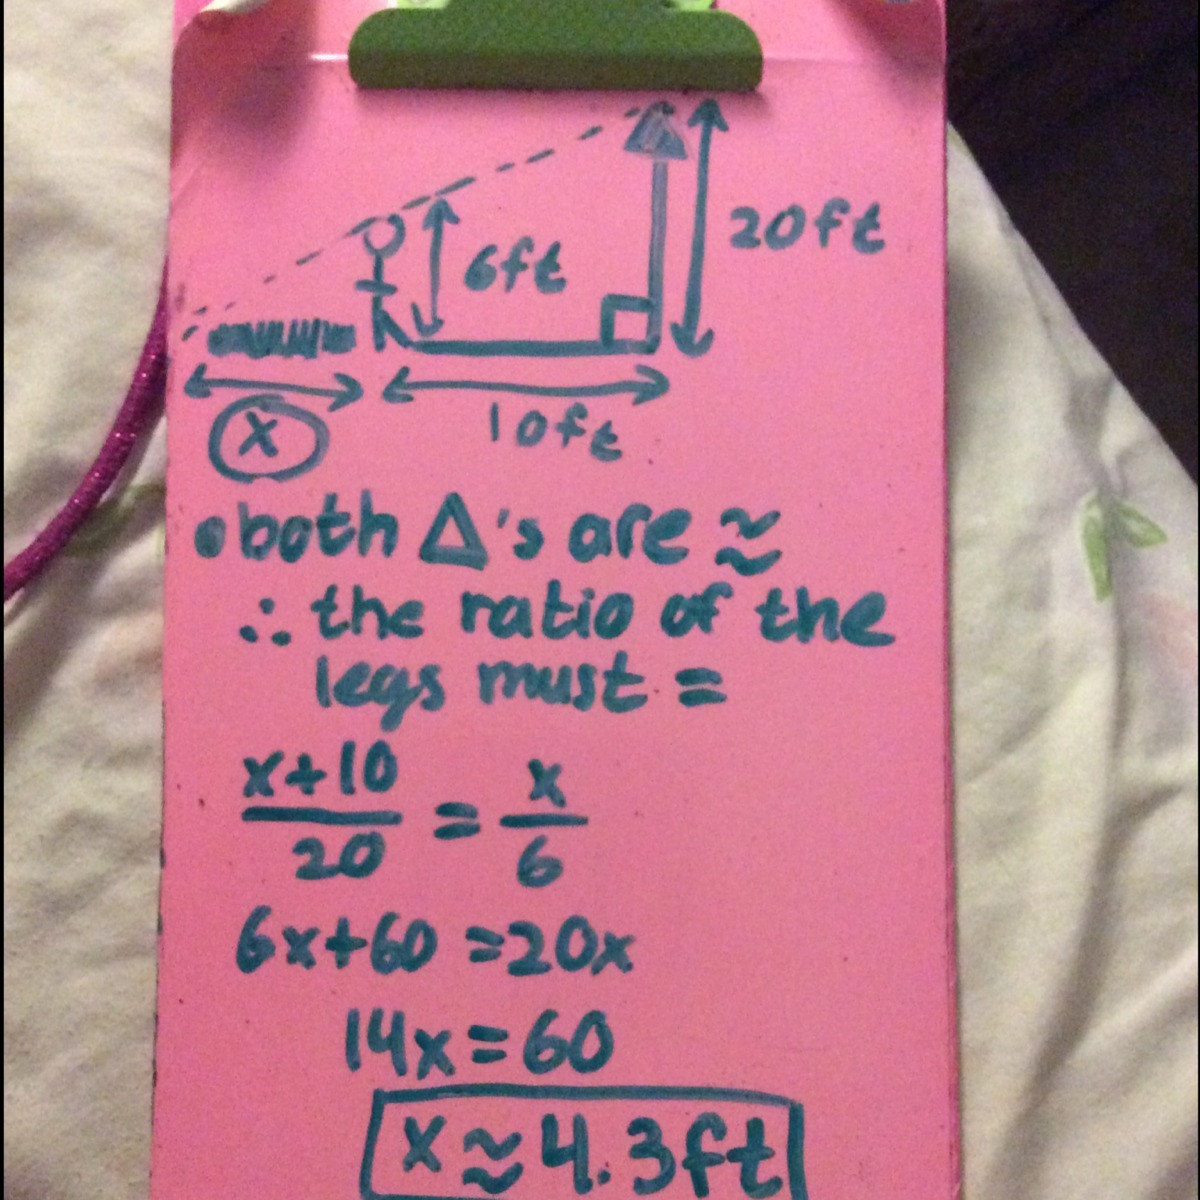 20ft
6ft
10ft
x
•both Δ's are ≈
∴ the ratio of the
legs must =
x+10/20 = x/6
6x+60 =20x
14x=60
x≈4.3ft